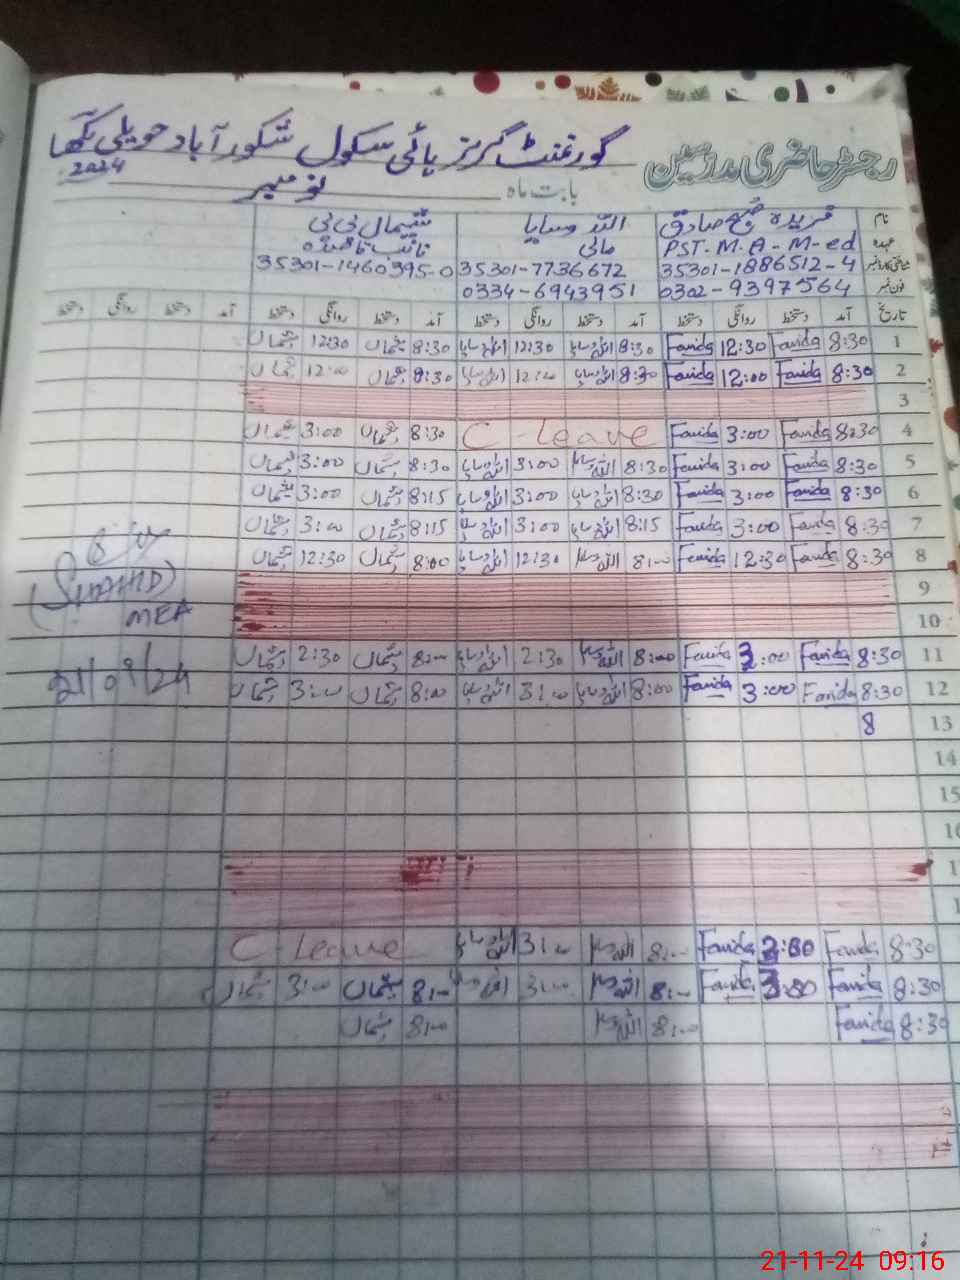 رجسٹر حاضری مدرسین گورنمنٹ گرلز ہائی سکول شکور آباد حویلی لکھا
بابت ماہ نومبر 2024
نام فریدہ صبح صادق اللہ وسایا شمال بی بی
عہدہ PST. M.A - M-ed مالی نائب قاصدہ
شناختی کارڈ نمبر 35301-1886512-4 35301-7736672 35301-1460395-0
فون نمبر 0302-9397564 0334-6943951
تاریخ آمد دستخط روانگی دستخط آمد دستخط روانگی دستخط آمد دستخط روانگی دستخط آمد دستخط روانگی دستخط
1 8:30 Farida 12:30 Farida 8:30 اللہ وسایا 12:30 اللہ وسایا 8:30 شمال 12:30 شمال
2 8:30 Farida 12:00 Farida 8:30 اللہ وسایا 12:00 اللہ وسایا 8:30 شمال 12:00 شمال
3
4 8:30 Farida 3:00 Farida C-leave 8:30 شمال 3:00 شمال
5 8:30 Farida 3:00 Farida 8:30 اللہ وسایا 3:00 اللہ وسایا 8:30 شمال 3:00 شمال
6 8:30 Farida 3:00 Farida 8:30 اللہ وسایا 3:00 اللہ وسایا 8:15 شمال 3:00 شمال
7 8:30 Farida 3:00 Farida 8:15 اللہ وسایا 3:00 اللہ وسایا 8:15 شمال 3:00 شمال
8 8:30 Farida 12:30 Farida 8:00 اللہ وسایا 12:30 اللہ وسایا 8:00 شمال 12:30 شمال
9
(SHAHID)
10
MEA
11 8:30 Farida 3:00 Farida 8:00 اللہ وسایا 2:30 اللہ وسایا 8:00 شمال 2:30 شمال
12 8:30 Farida 3:00 Farida 8:00 اللہ وسایا 3:00 اللہ وسایا 8:00 شمال 3:00 شمال
13 8
14
15
8:30 Farida Farida 8:00 اللہ وسایا 3:00 اللہ وسایا C-Leave
8:30 Farida Farida 8:00 اللہ وسایا 3:00 اللہ وسایا 8:00 شمال 3:00 شمال
8:30 Farida 8:00 اللہ وسایا 8:00 شمال
21-11-24 09:16